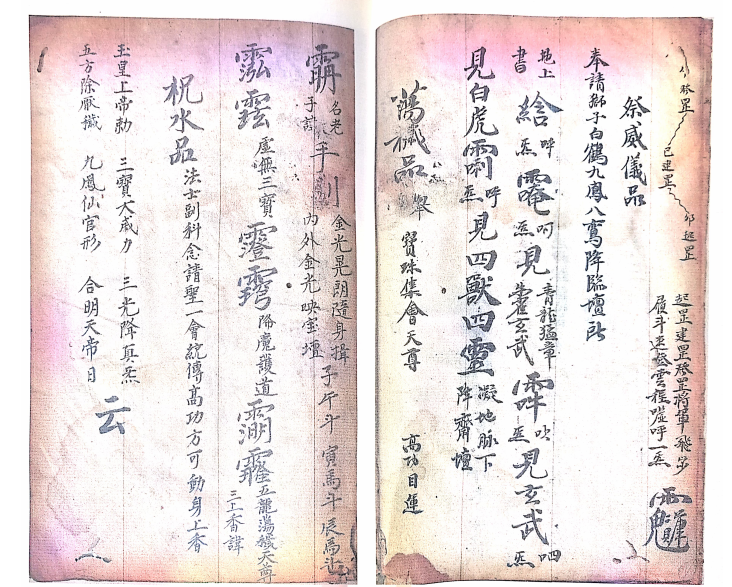 起罡建罡發罡將軍飛步
履斗逐發雲程噓呼一炁
己建罡
卯起罡
祭威儀品
奉請獅子白鶴九鳳八鸞降臨壇所
地上書
呵
炁
見
青龍猛章
朱雀玄武
吹
炁
見玄武
呬
炁
見白虎
呼
炁
見四獸四靈
凝地脉下
降齋壇
蕩穢品
舉
寶珠集會天尊
高功目運
名老
子諱
金光晃朗隨身揖
內外金光映室壇
子午斗
寅馬斗辰馬斗
虛無三寶
降魔護道
五龍蕩穢天尊
三上香諱
柷水品
法士副科念請聖一會統傳高功方可動身上香
玉皇上帝勅
三寶大威力
三光降真炁
五方除厭穢
九鳳仙官形
合明天帝日
云